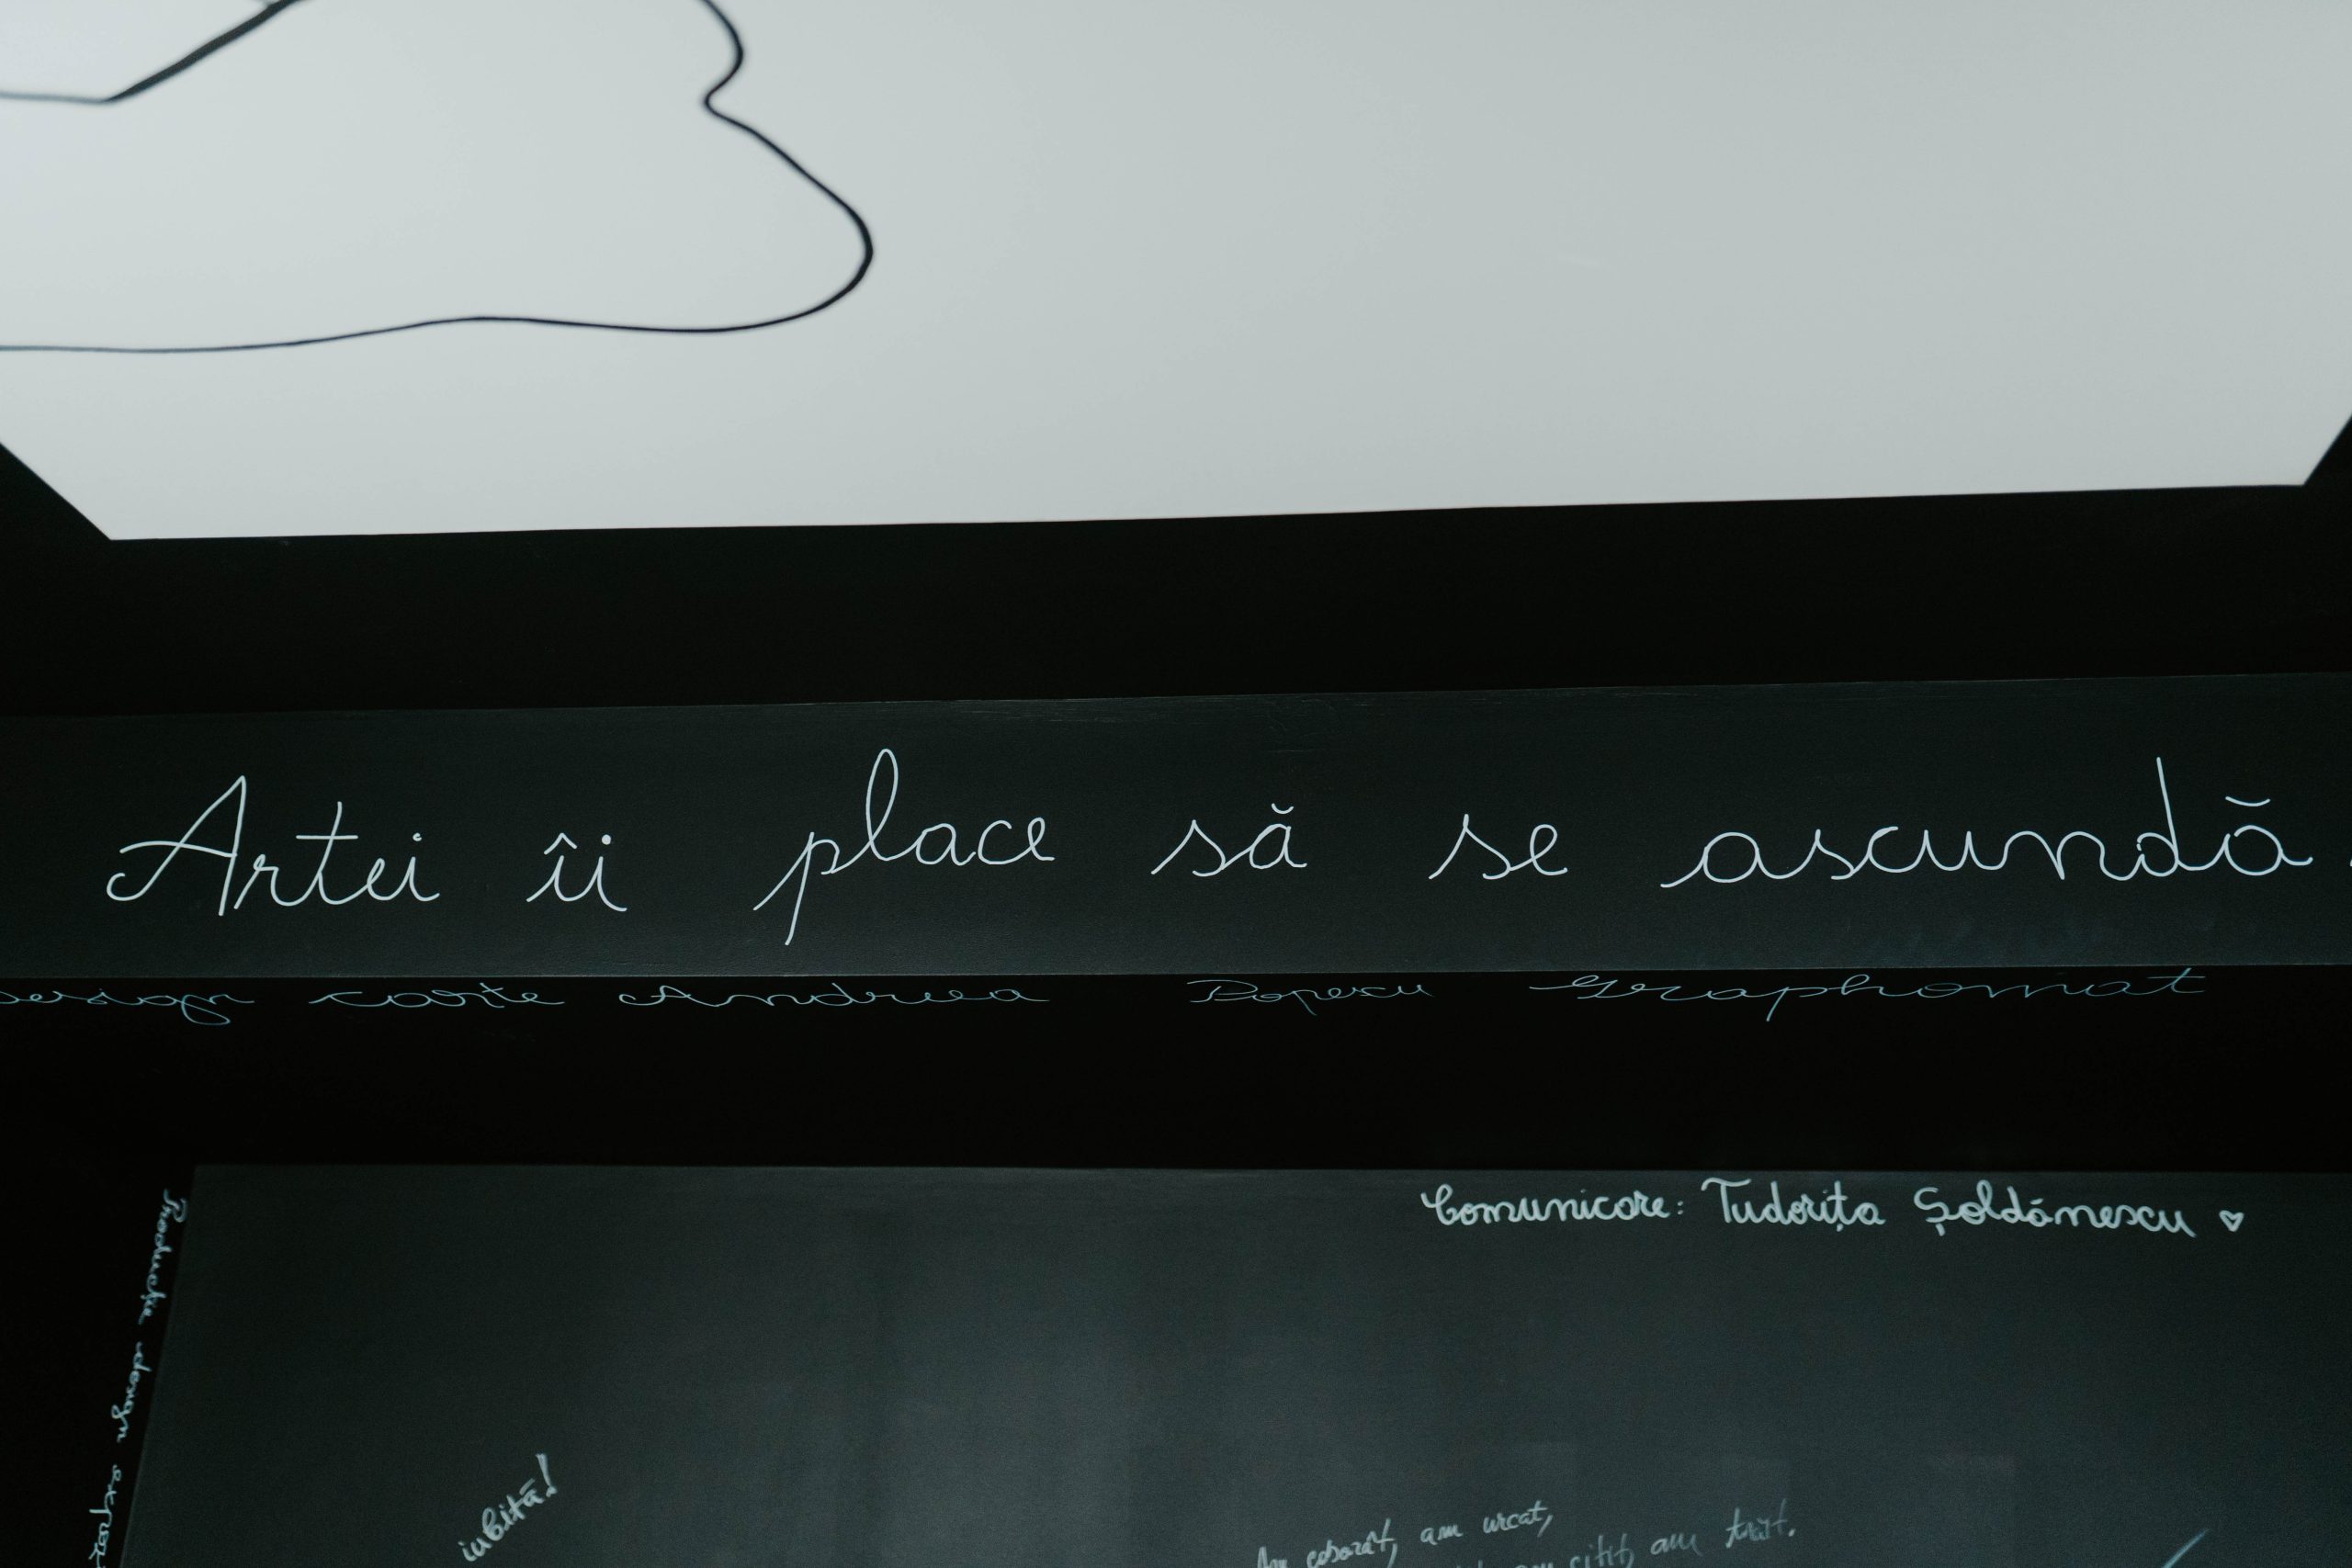 Artei îi place să se ascundă.
Design carte Andreea Popescu Graphomat
Comunicare: Tudorița Șoldănescu ♡
Producție design expozi
iubită!
Am coborât, am urcat,
am citit, am trăit.